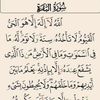 سُورَةُ البَقَرَة
ٱللَّهُ لَآ إِلَٰهَ إِلَّا هُوَ ٱلْحَىُّ
ٱلْقَيُّومُ لَا تَأْخُذُهُۥ سِنَةٌ وَلَا نَوْمٌ لَّهُۥ مَا
فِى ٱلسَّمَٰوَٰتِ وَمَا فِى ٱلْأَرْضِ مَن ذَا ٱلَّذِى
يَشْفَعُ عِندَهُۥٓ إِلَّا بِإِذْنِهِۦ يَعْلَمُ مَا بَيْنَ
أَيْدِيهِمْ وَمَا خَلْفَهُمْ وَلَا يُحِيطُونَ بِشَىْءٍ